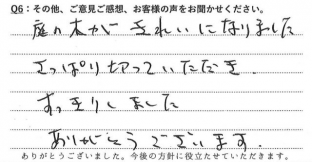 Q6：その他、ご意見ご感想、お客様の声をお聞かせください。
庭の木がきれいになりました
さっぱり切っていただき、
すっきりしました
ありがとうございます.
ありがとうございました。今後の方針に役立たせていただきます。